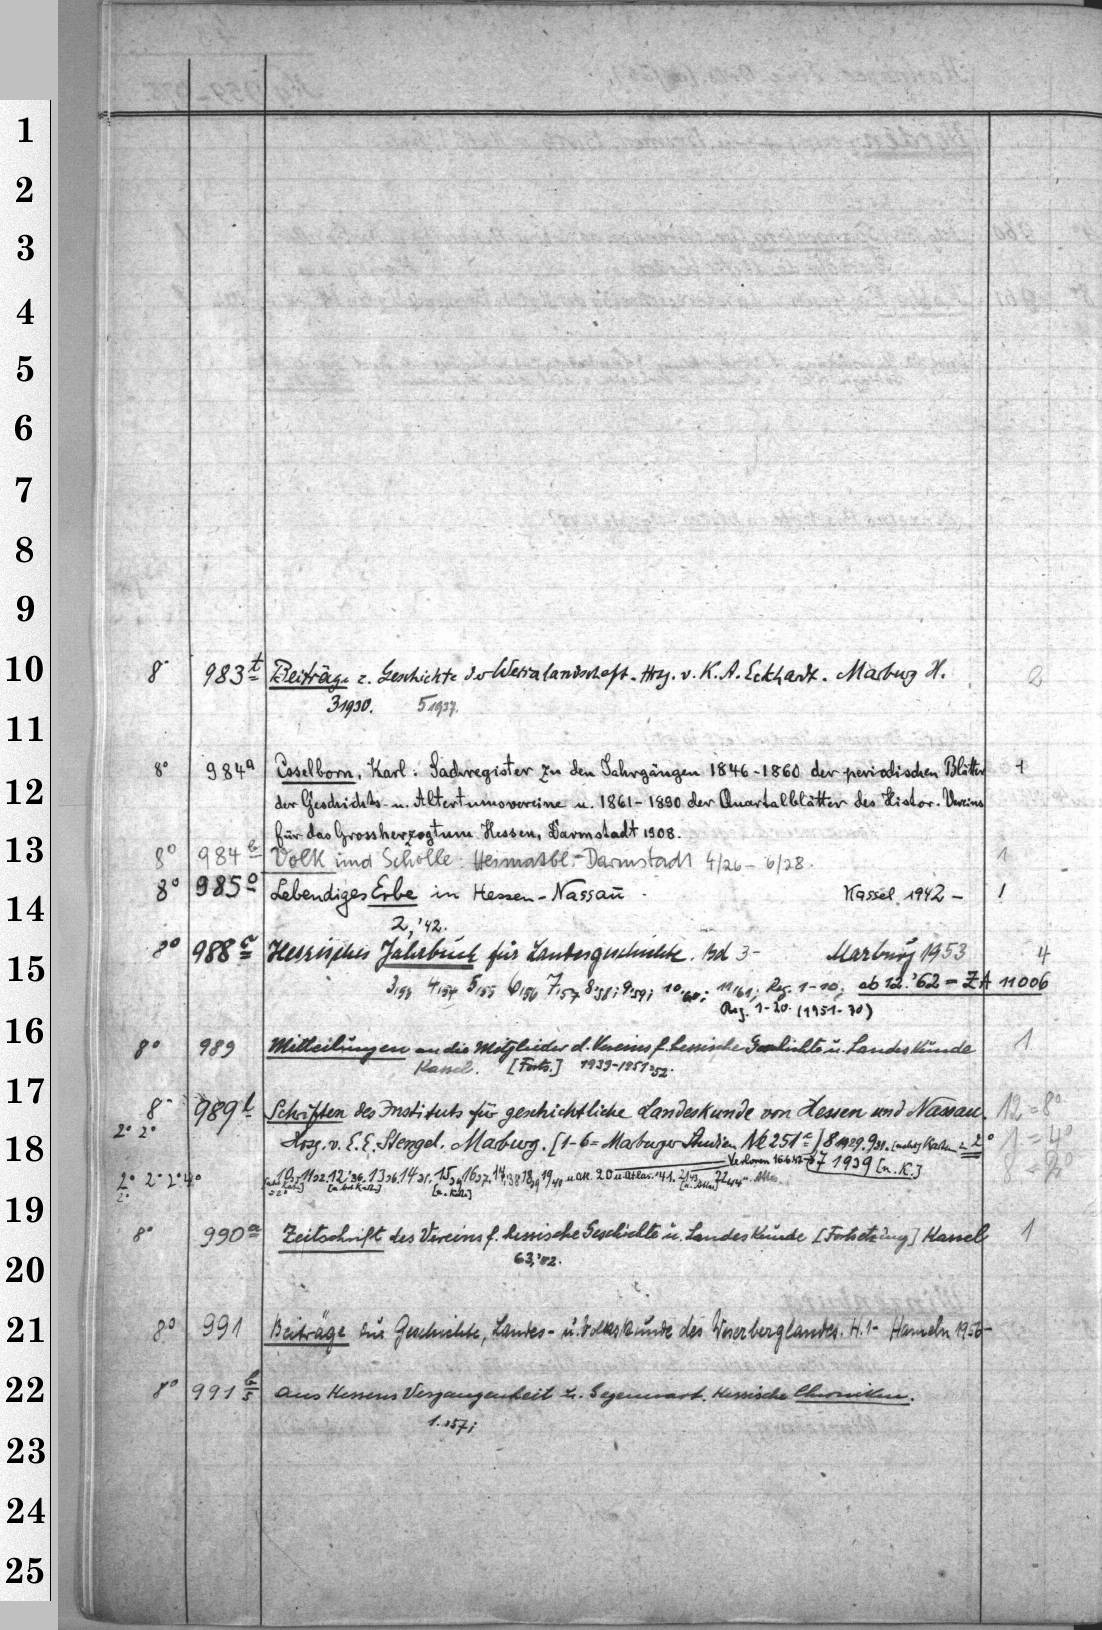 1
2
3
4
5
6
7
8
9
10
8° 983t Beiträge z. Geschichte der Werralandschaft. Hrg. v. K. A. Eckhardt. Marburg H. 2
3 1930. 5 1937.
11
8° 984a Esselborn, Karl: Sachregister zu den Jahrgängen 1846-1860 der periodischen Blätter 1
12
der Geschichts- u. Altertumsvereine u. 1861-1890 der Quartalblätter des Histor. Vereins
für das Grossherzogtum Hessen, Darmstadt 1908.
13
8° 984b Volk und Scholle: Heimatbl. Darmstadt 4/26 - 6/28. 1
8° 985o Lebendiges Erbe in Hessen-Nassau Kassel 1942 - 1
14
2, '42.
8° 988c Hessisches Jahrbuch für Landesgeschichte. Bd 3- Marburg 1953 4
15
3,'53 4'54 5'55 6'56 7'57 8'58; 9'59; 10'60; 11'61; Reg. 1-10; ab 12.'62 = ZA 11006
Reg. 1-20. (1951-70)
16
8° 989 Mitteilungen an die Mitglieder d. Vereins f. hessische Geschichte u. Landeskunde 1
Kassel. [Forts.] 1939-1951 '52.
17
8° 989b Schriften des Instituts für geschichtliche Landeskunde von Hessen und Nassau. 12 = 8°
2° 2° Hrsg. v. E. E. Stengel. Marburg. [1-6 = Marburger Studien Nk 251c] 8 1929. 9 31. Karten 2° 1 = 4°
18
Verloren 7 1939 [u. K.] 8 = 2°
2° 2° 2° 4° 10 11 12 '36. 13 36. 14 15 16 37. 17 18 19 20 u. Atlas. '41. 21 22
2°
19
8° 990a Zeitschrift des Vereins f. hessische Geschichte u. Landeskunde [Fortsetzung] Kassel 1
63,'52.
20
21
8° 991 Beiträge zur Geschichte, Landes- u. Volkskunde des Weserberglandes. H. 1- Hameln 1956-
22
8° 991 b/5 Aus Hessens Vergangenheit u. Gegenwart. Hessische Chroniken.
1. '57;
23
24
25